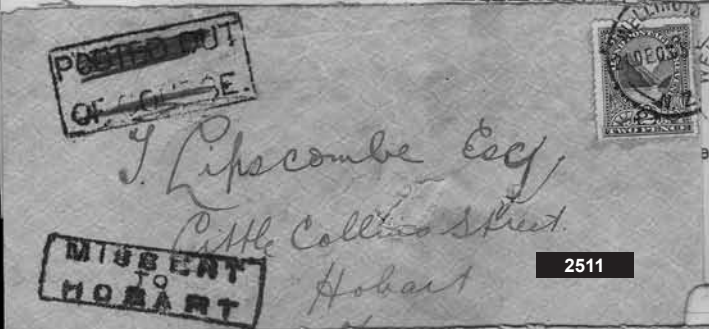 POSTED OUT
OF COURSE.
WELLINGTON
N.Z.
TWO PENCE
T. Lipscombe Esq
Little Collins Street.
Hobart
MISSENT
TO
HOBART
2511